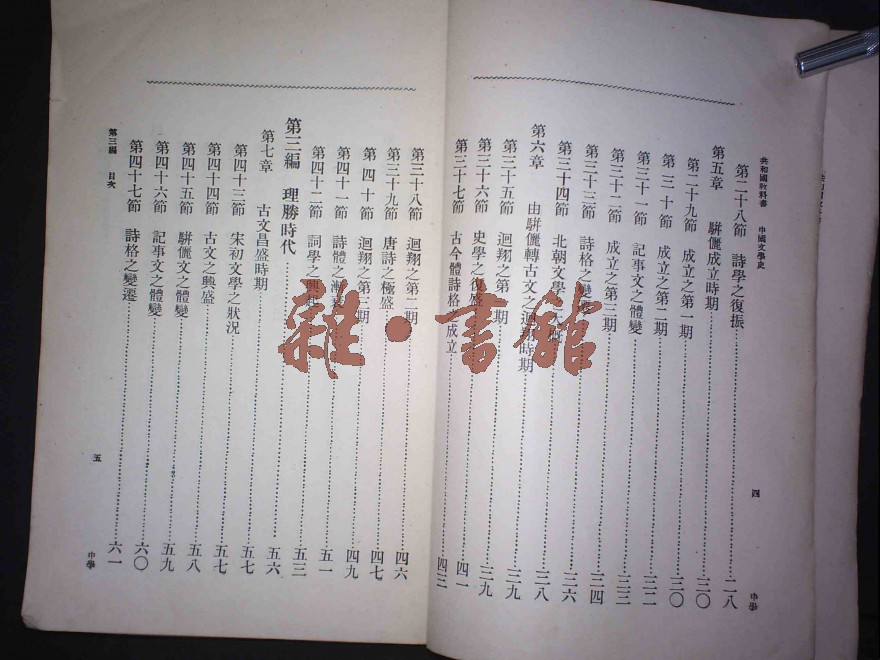 共和國教科書 中國文學史
第二十八節 詩學之復振 二八
第五章 駢儷成立時期 三〇
第二十九節 成立之第一期 三〇
第三十節 成立之第二期 三二
第三十一節 記事文之體變 三三
第三十二節 成立之第三期 三四
第三十三節 詩格之變 三六
第三十四節 北朝文學 三八
第六章 由駢儷轉古文之迴翔時期 三九
第三十五節 迴翔之第 期 三九
第三十六節 史學之復盛 四一
第三十七節 古今體詩格之成立 四三
四
中學
第三十八節 迴翔之第二期 四六
第三十九節 唐詩之極盛 四七
第四十節 迴翔之第三期 四九
第四十一節 詩體之漸 五一
第四十二節 詞學之興 五三
第三編 理勝時代 五六
第七章 古文昌盛時期 五七
第四十三節 宋初文學之狀況 五七
第四十四節 古文之興盛 五八
第四十五節 駢儷文之體變 五九
第四十六節 記事文之體變 六〇
第四十七節 詩格之變遷 六一
第三編 目次
五
中學
雜·書館